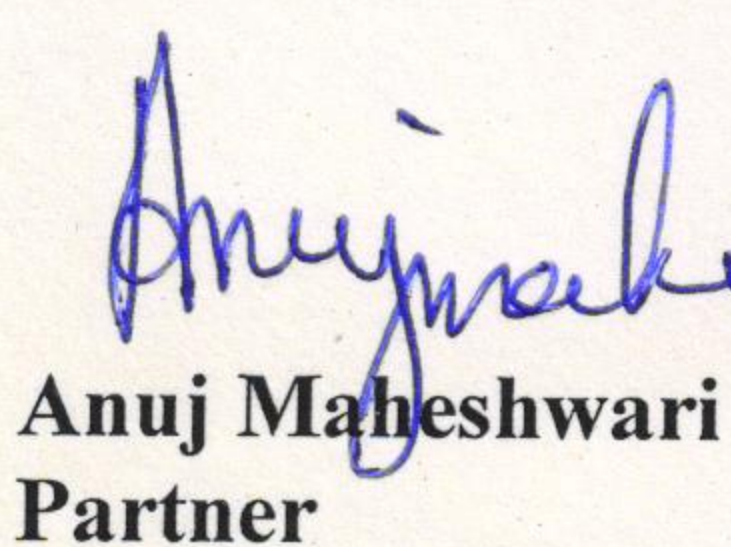 Anujmah
Anuj Maheshwari
Partner